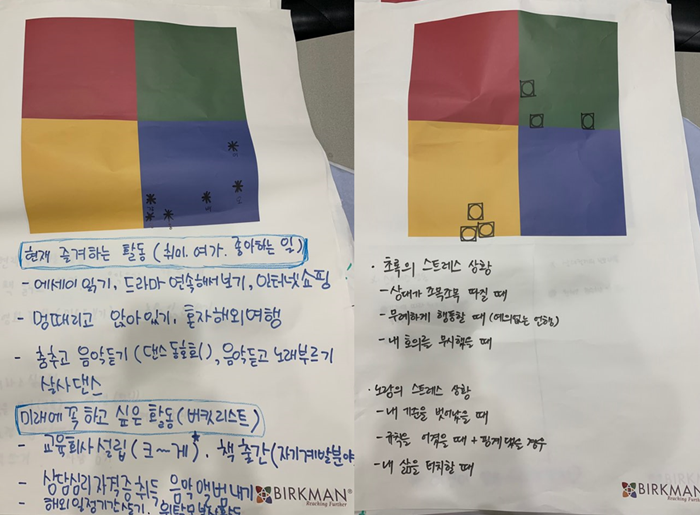 현재 즐겨하는 활동 (취미. 여가. 좋아하는 일)
- 에세이 읽기, 드라마 연속해서보기, 인터넷쇼핑
- 멍때리고 앉아있기. 혼자해외여행
- 춤추고 음악듣기 (댄스동호회), 음악듣고 노래부르기
살사댄스
미래에 꼭 하고 싶은 활동 (버킷리스트)
- 교육회사 설립 (크~게)*. 책 출간 (자기계발분야
- 상담심리자격증취득 음악앨범내기
- 해외일정기간살기.
BIRKMAN®
Reaching Further
· 초록의 스트레스 상황
- 상대가 조목조목 따질 때
- 무례하게 행동할 때 (예의없는 언행)
- 내 호의를 무시했을 때
· 노랑의 스트레스 상황
- 내 기준을 벗어났을 때
- 규칙을 어겼을 때 + 핑계대는 경우
- 내 삶을 터치할 때
BIRKMAN
Reaching Further